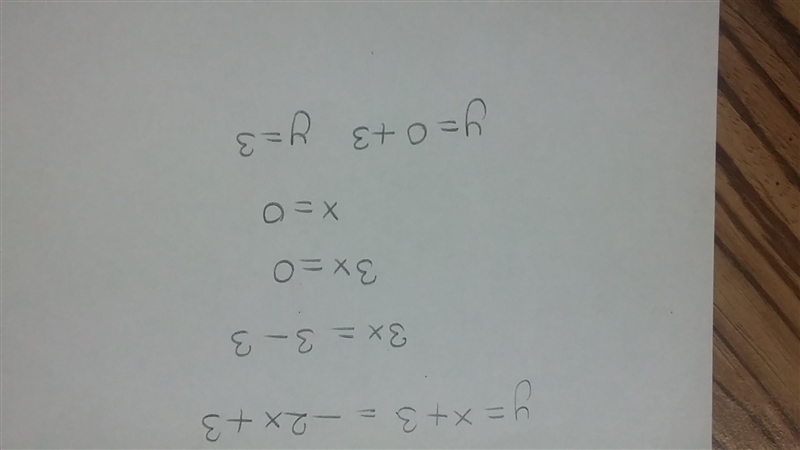 y = x + 3 = -2x + 3
3x = 3 - 3
3x = 0
x = 0
y = 0 + 3 y = 3